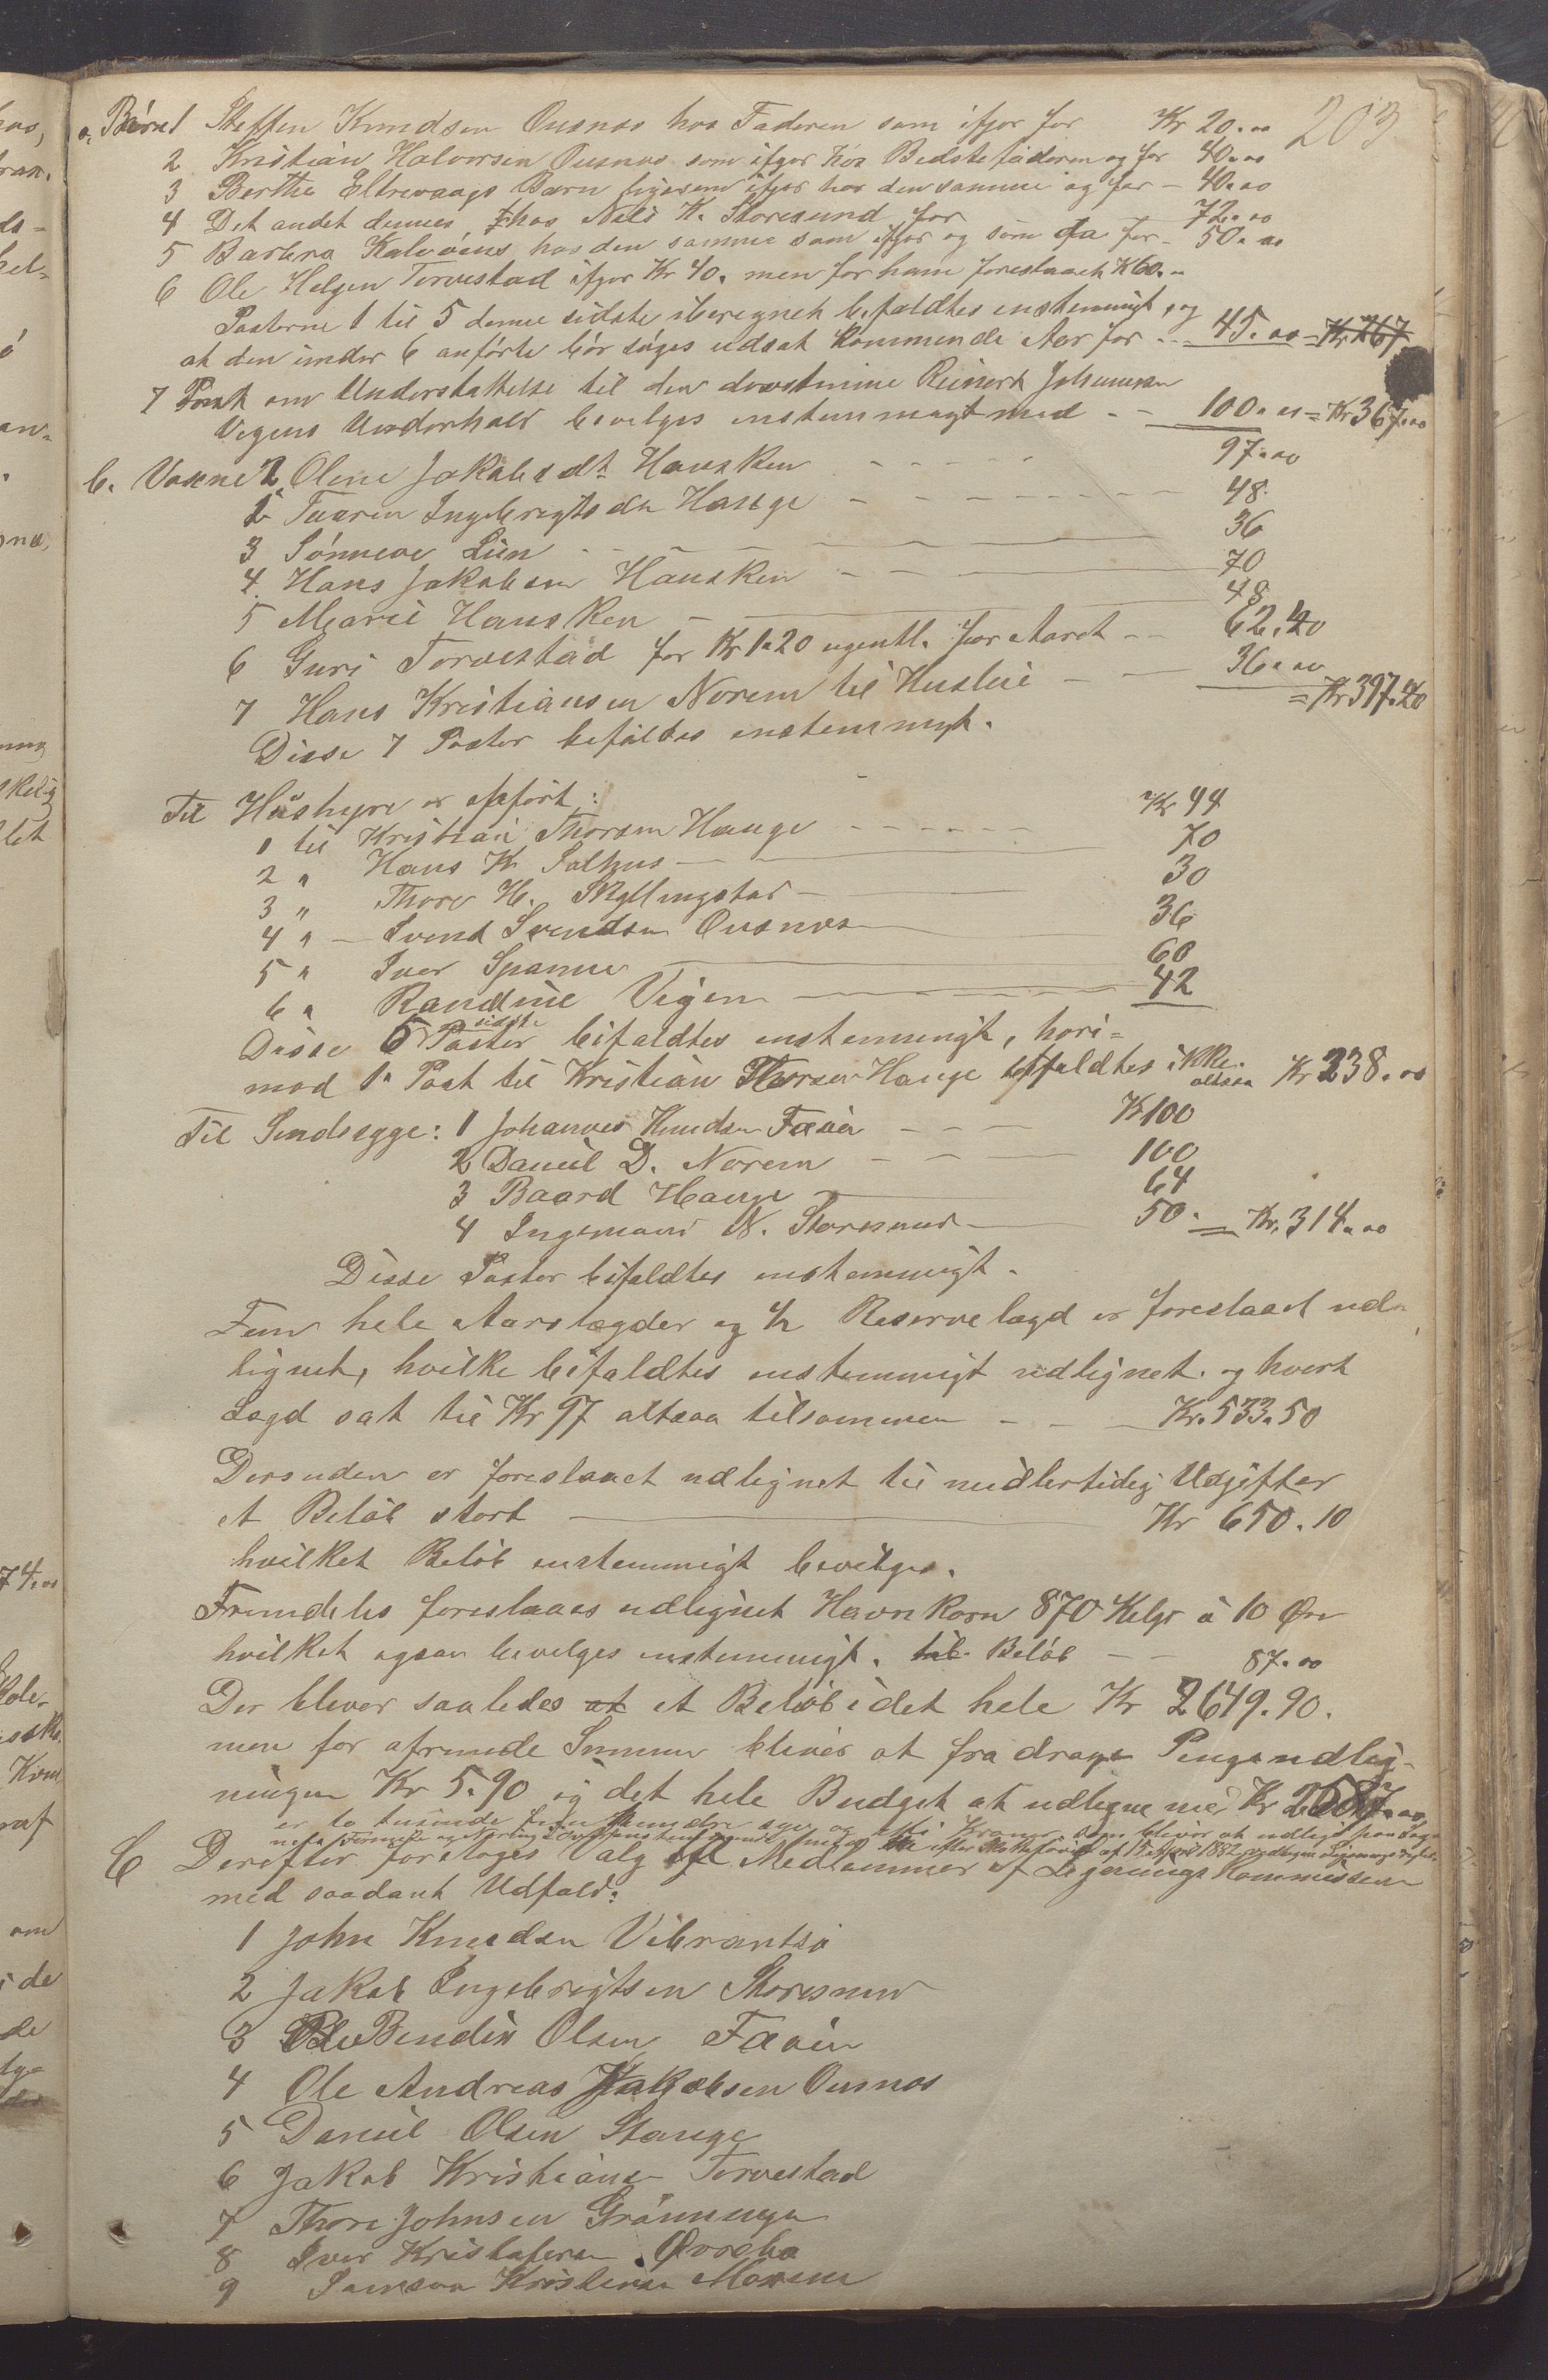 203
a, Børn 1 Steffen Knudsen Ousnes hos Faderen som ifjor for Kr 20.00
2 Kristian Halvorsen Ousnes som ifjor hos Bedstefaderen og for 40.00
3 Berthe Eltrevaags Barn ligesom ifjor hos den samme og for - 40.00
4 Det andet dennes hos Nels K. Storesund for 72.00
5 Barbra Kalvøens hos den samme som ifjor og som da for - 50.00
6 Ole Helgen Torvestad ifjor Kr 40. men for ham foreslaaet K 60.-
Posterne 1 til 5 denne sidste iberegnet bifaldtes enstemmigt, og
at den under 6 anførte bør søges udsat kommende Aar for - 45.00 = Kr 267
7 Post om Understøttelse til den døvstumme Reinert Johannesen
Vegens Underhold bevilges enstemmigt med - - 100.00 = Kr 367.00
b. Voxne 1 Oline Jakobsdt. Hausken - - - - - 97.00
2 Taaren Ingebrigtsdt Hauge - - - - - 48.
3 Sønneve Lien - - 36
4. Hans Jakobsen Hausken - - 70
5 Marie Hausken - 48
6 Guri Torvestad for Kr 1.20 ugentl. for Aaret - - 62.40
7 Hans Kristiansen Norem til Husleie - - 36.00
= Kr 397.40
Disse 7 Poster bifaldtes enstemmigt.
Til Hushyre er opført:
1 til Kristian Thorsen Hauge - - - - - Kr 44
2 " Hans K. Salhus - 70
3 " Thore H. Skyllingstad - 30
4 " - Svend Svendsen Ousnes 36
5 " Iver Spanne 60
6 " Randine Vigen 42
Disse 5 sidste Poster bifaldtes enstemmigt, hvori=
mod 1. Post til Kristian Thorsen Hauge bifaldtes ikke. altsaa Kr 238.00
Til Sindsyge: 1 Johannes Knudsen Fæøen - - - K 100
2 Daniel D. Norem - - - 100
3 Baard Hauge 64
4 Ingemand N. Storesund 50. = Kr. 314.00
Disse Poster bifaldtes enstemmigt.
Fem hele Aarslægder og ½ Reservelægd er foreslaaet ud-
lignet, hvilke bifaldtes enstemmigt udlignet. og hvert
Lægd sat til Kr 97 altsaa tilsammen - - - Kr. 533.50
Desuden er foreslaaet udlignet til midlertidig Udgifter
et Beløb stort Kr 650.10
hvilket Beløb enstemmigt bevilges.
Fremdeles foreslaaes udlignet Havnkorn 870 Kilgr á 10 Øre
hvilket ogsaa bevilges enstemmigt. Beløb - - 87.00
Der bliver saaledes et Beløb i det hele Kr 2649.90.
men for afrunde Summen bliver at fradrage Pengeudlig-
ningen Kr 5.90 og det hele Budget at udligne med Kr
er to tusinde fem hundre syv og otti Kroner som bliver at udligne
C Derefter foretoges Valg af Medlemmer af Ligningskommissionen
med saadant Udfald:
1 John Knudsen Vibrandsø
2 Jakob Ingebrigtsen Storesund
3 Bendix Olsen Fæøen
4 Ole Andreas Jakobsen Ousnes
5 Daniel Olsen Stange
6 Jakob Kristiansen Torvestad
7 Thore Johnsen Grønningen
8 Iver Kristofersen Qvreba
9 Samson Kristensen